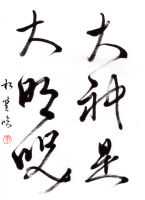 大神是
大明呪